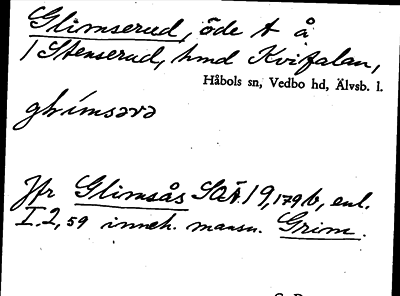 Glimserud, öde t å
/ Stenserud, hmd Kvifalan,
Håbols sn, Vedbo hd, Älvsb. l.
glimsərə
Jfr Glimsås SOÄ 19, 179 b, enl.
I. 2, 59 inneh. mansn. Grim.